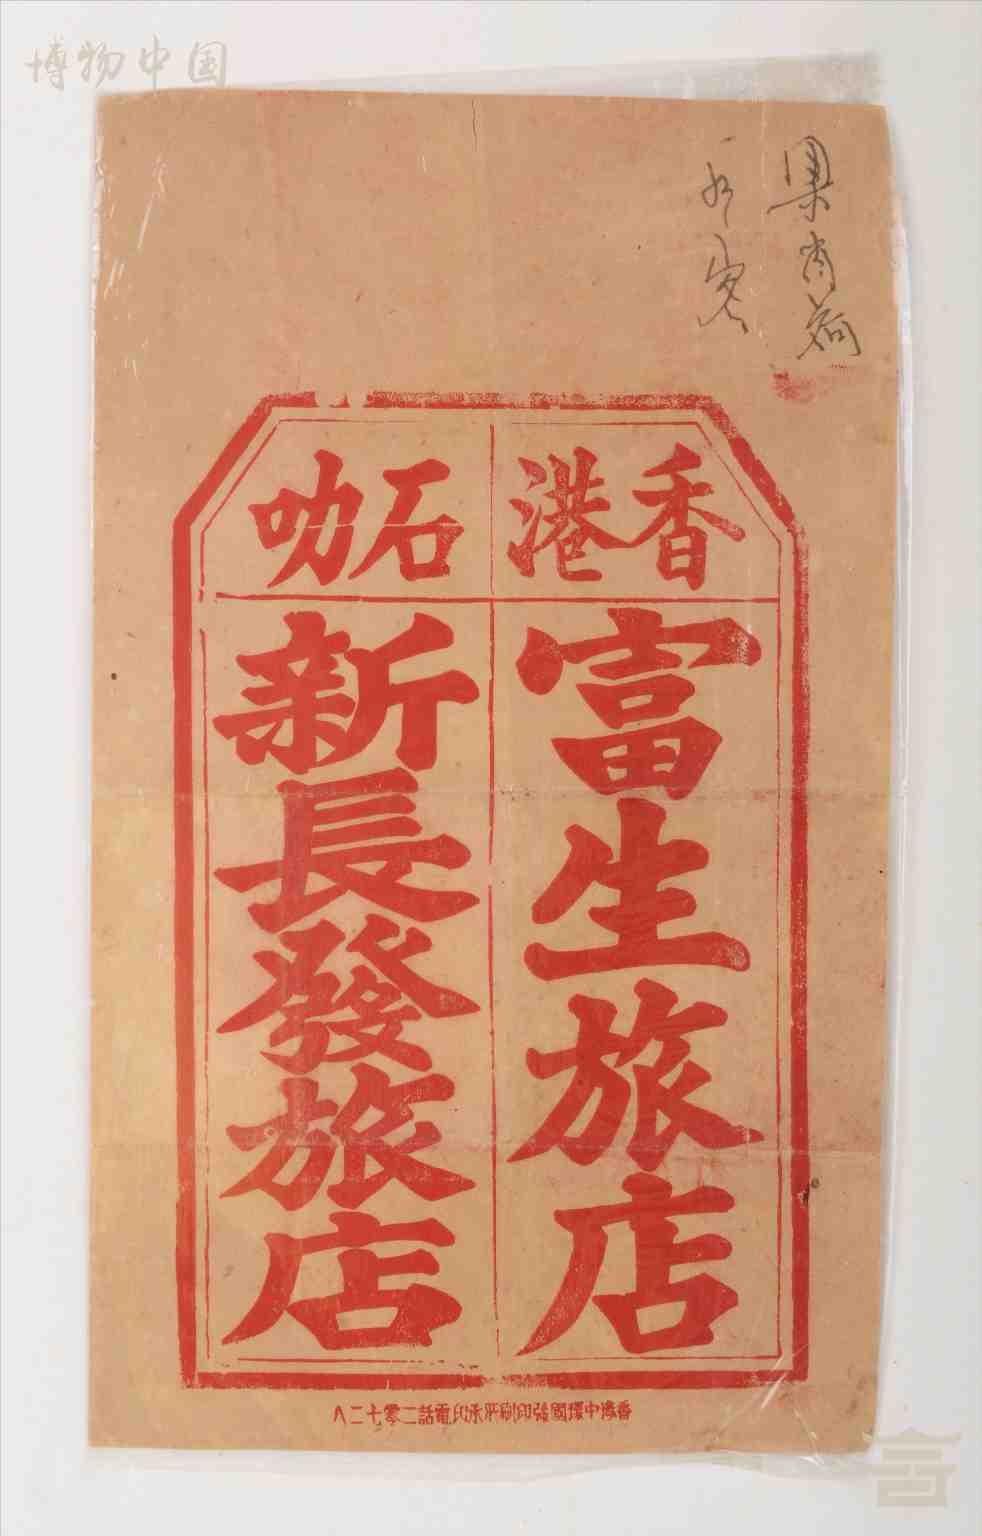 博物中国
香港
富生旅店
石叻
新長發旅店
香港中環國強印刷所承印電話二零七二八